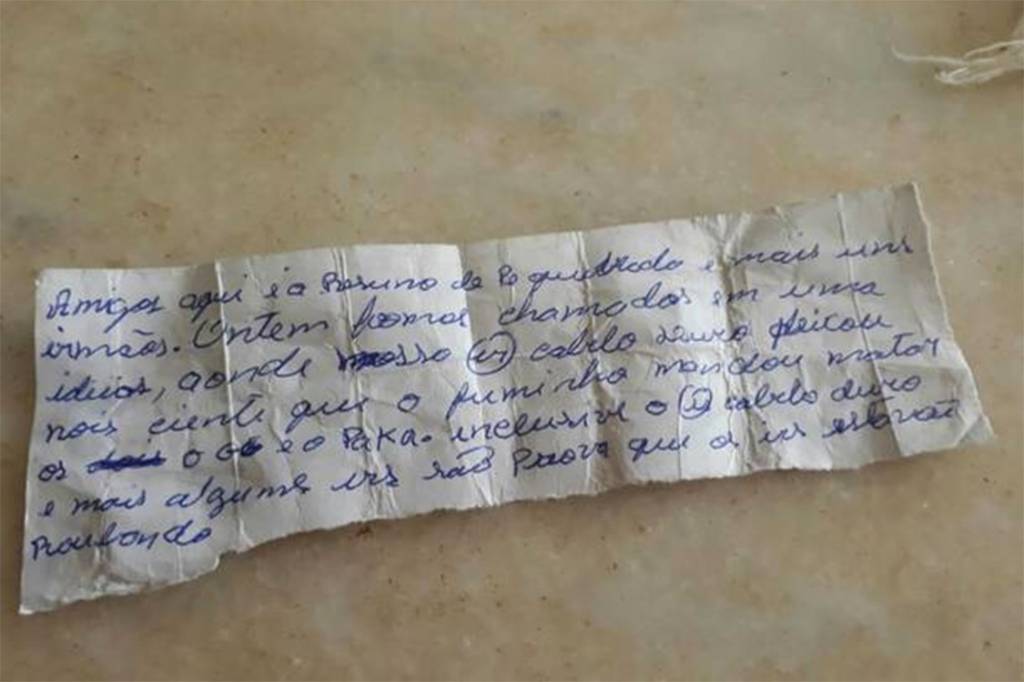 Amigos aqui é a Resumo de Re quebrada e mais uns
irmãos. Ontem fomos chamados em uma
ideias, aonde nosso (ir) cabelo duro deixou
nois ciente que o fuminho mandou matar
os o GG e o Paka. inclusive o (ir) cabelo duro
e mais algums irs são Prova que os irs estavão
Roubando